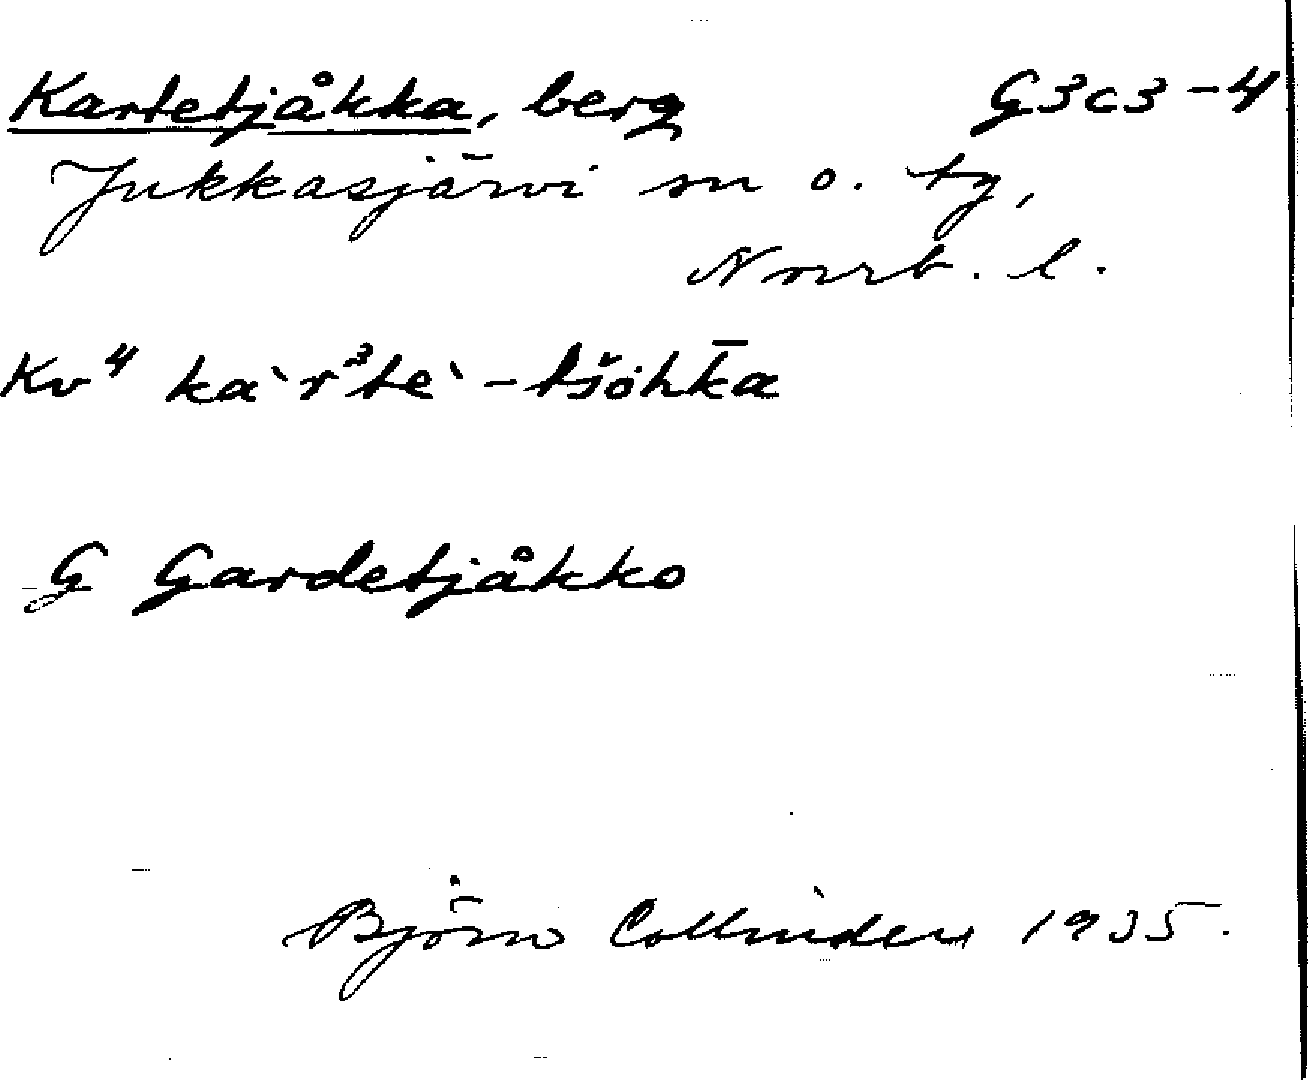 Kartetjåkka, berg G3c3-4
Jukkasjärvi sn o. tg,
Norrb. l.
Kv⁴ ka`r³te`-tšȯhk̄a
G Gardetjåkko
Björn Collinder 1935.